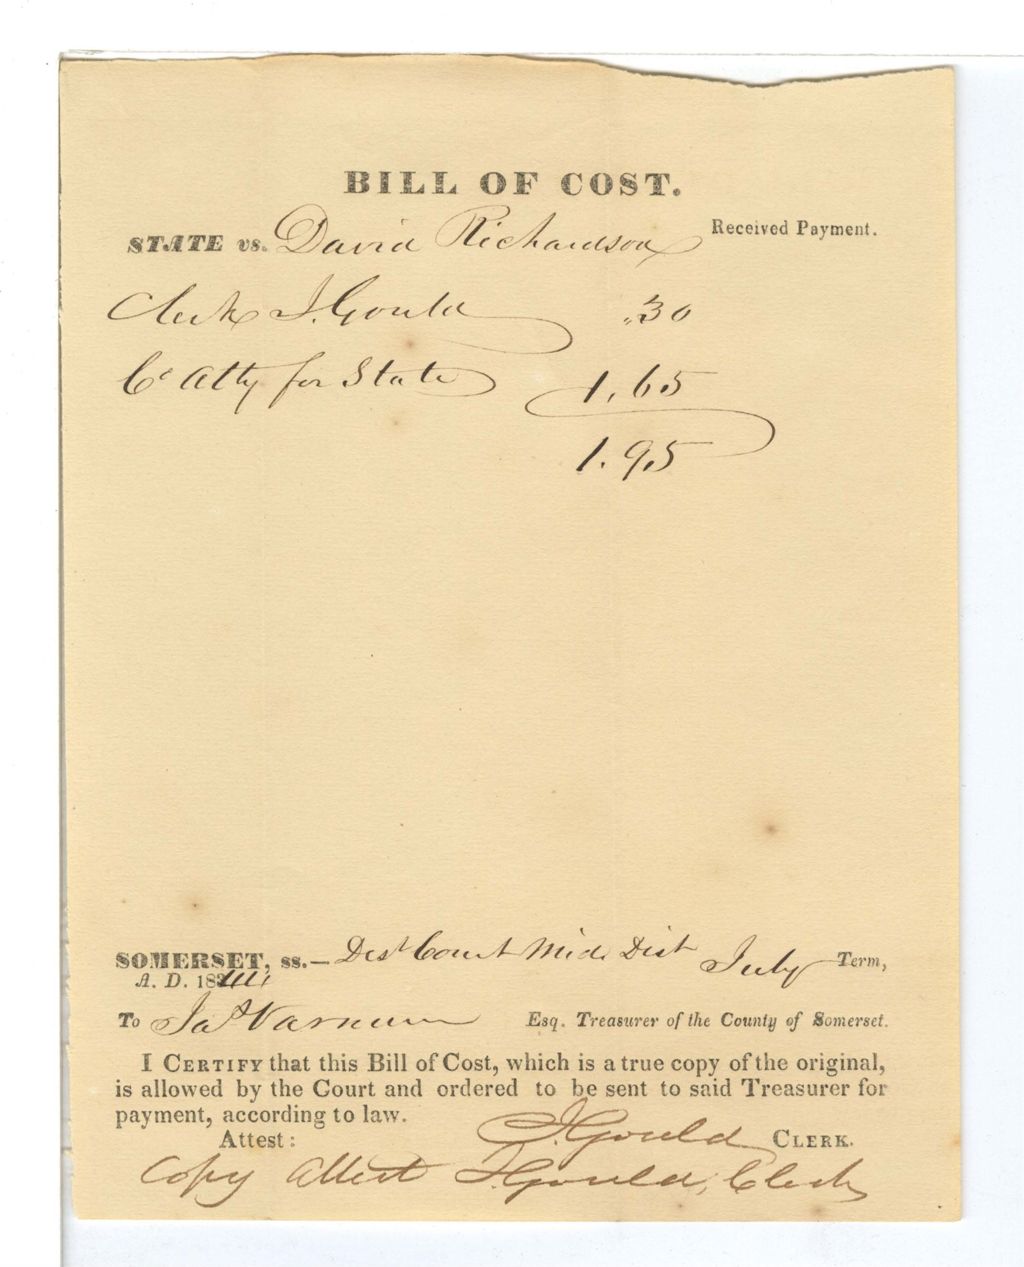 BILL OF COST.
STATE vs. David Richardson
Received Payment.
Clerk J. Gould .30
Co Atty for State 1.65
1.95
SOMERSET, ss.— Dist Court Mid Dist July Term,
A. D. 18
To Jas Varnum Esq. Treasurer of the County of Somerset.
I CERTIFY that this Bill of Cost, which is a true copy of the original,
is allowed by the Court and ordered to be sent to said Treasurer for
payment, according to law.
Attest: J. Gould CLERK.
Copy Attest J. Gould, Clerk